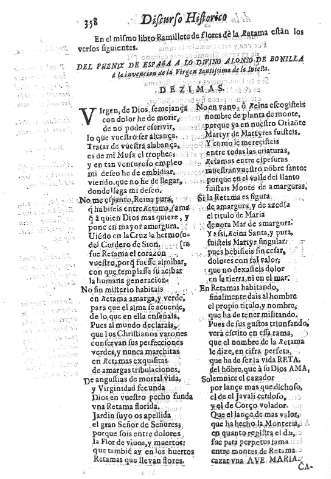 358 Discurso Historico
En el mismo libro Ramillete de flores de la Retama están los
versos siguientes.
DEL PHENIX DE ESPAÑA A LO DIVINO ALONSO DE BONILLA
a la invencion de la Virgen Santissima de la
DEZIMAS.
Virgen, de Dios semejança
con dolor he de morir,
de no poder escrevir,
lo que vuestro ser alcança.
Tratar de vuestra alabança,
es de mi Musa el tropheo:
y en tan vitorioso empleo
mi desseo he de embidiar,
viendo, que no he de llegar,
donde llega mi deseo.
No me espanto, Reina pura,
q habiteis entre Retama,
q à quien Dios mas quiere,
pone en mayor amargura.
en la Cruz la hermosura
del Cordero de Sion,
fue Retama el coraçon
vuestro, porq fue
con que templasse
la humana generacion.
No sin misterio habitais
en Retama amarga, y verde,
para que el alma se acuerde,
de lo que en ella enseñais.
Pues al mundo declarais,
que los Christianos varones
conservan sus perfecciones
verdes, y nunca marchitas
en Retamas exquisitas
de amargas tribulaciones.
De angustias de mortal vida,
y Virginidad fecunda
Dios en vuestro pecho funda
vna Retama florida.
Jardin suyo os apellida
el gran Señor de Señores;
porque sois entre dolores
la Flor de vivos, y muertos:
que tambien ay en los huertos
Retamas que llevan flores.
No en vano, ò Reina escogisteis
nombre de planta de monte,
porque ya en nuestro Orizonte
Martyr de Martyres fuisteis,
Y en mereceis
entre todas las criaturas,
Retamas entre espesuras
porque en el valle del llanto
fuisteis Monte de amarguras,
Si la Retama es figura
de amargura, y de
el titulo de Maria
denota Mar de amargura:
Y assi, Reina Santa, y pura,
fuisteis Martyr singular:
pues bebisteis sin cesar,
dolores con tal valor;
que no dexasteis dolor
en la tierra, ni en el mar.
En Retamas habitando,
finalmente dais al hombre
el propio titulo, y nombre,
que ha de tener militando.
Pues de sus gustos triunfando,
verà escrito en essa rama,
que el nombre de la Retama
le dize, en cifra perfeta,
que ha de ser la vida RETA,
del hõbre, que à su Dios AMA,
Solemnice el caçador
por lance mas que dichoso,
el de el Javali
y el de Corço volador.
Que el lance, de mas valor,
que ha hecho la Monteria,
en quanto registra el dia,
fue para portento del
tomar montes de Retama
caçar vna AVE MARIA.
CA-